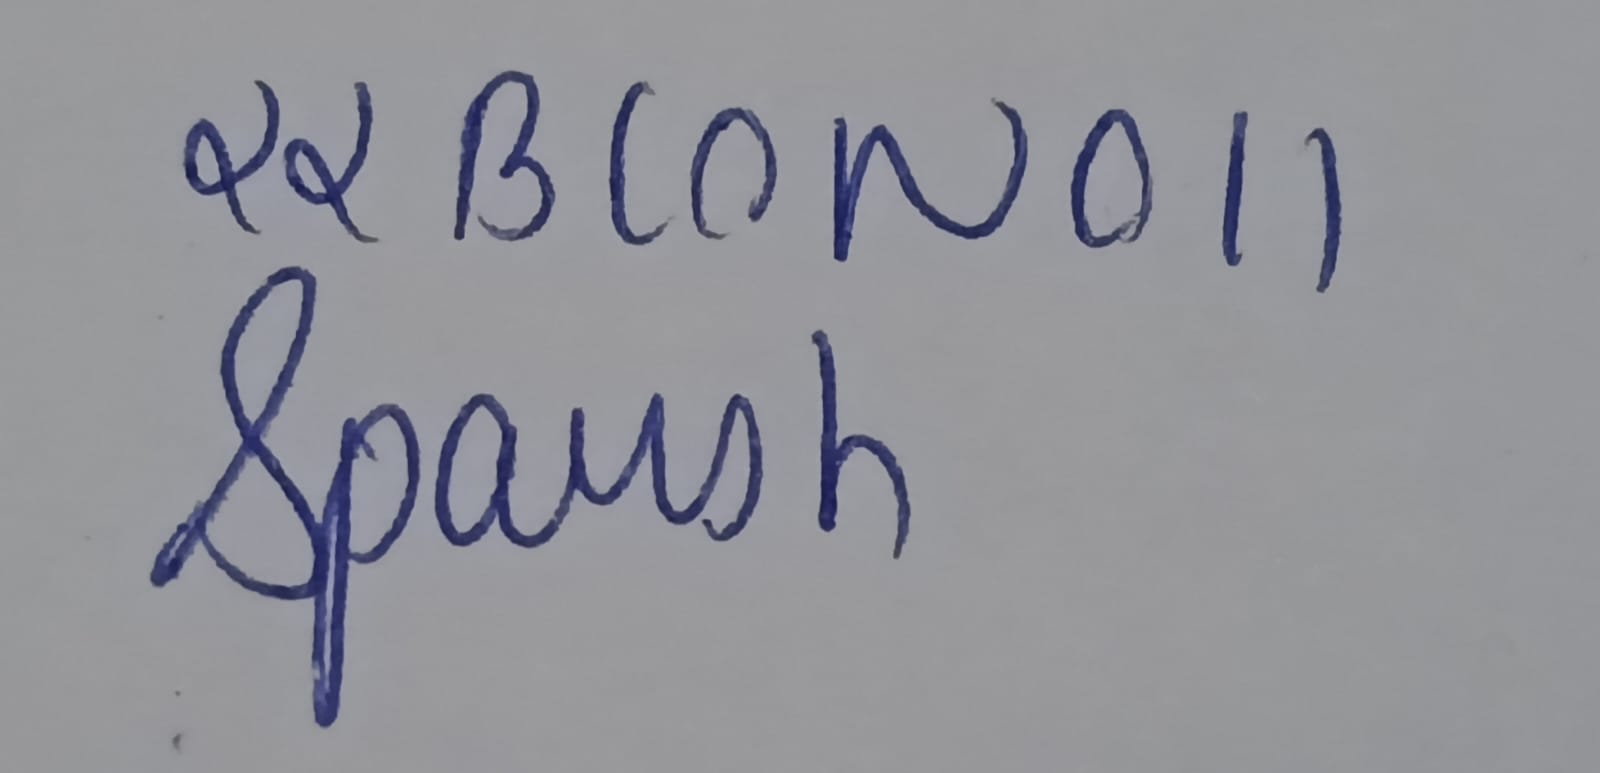 22BCON011
Spansh